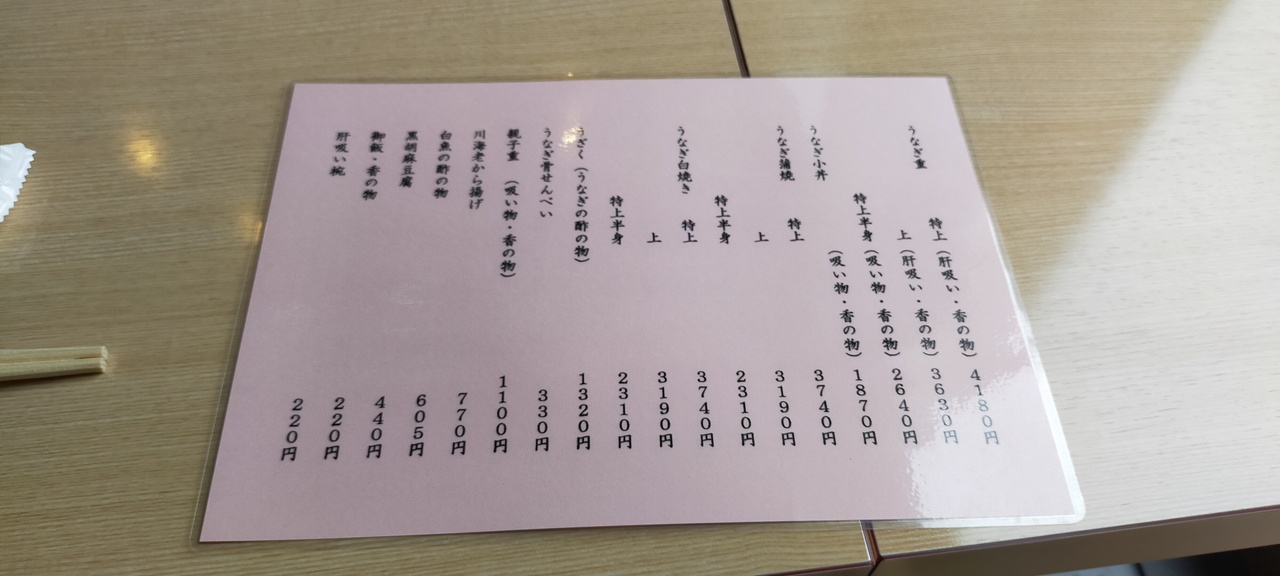 うなぎ重
特上（肝吸い・香の物） 4180円
上（肝吸い・香の物） 3630円
特上半身（吸い物・香の物） 2640円
うなぎ小丼 （吸い物・香の物） 1870円
うなぎ蒲焼 特上 3740円
上 3190円
特上半身 2310円
うなぎ白焼き 特上 3740円
上 3190円
特上半身 2310円
うざく（うなぎの酢の物） 1320円
うなぎ骨せんべい 330円
親子重 （吸い物・香の物） 1100円
川海老から揚げ 770円
白魚の酢の物 605円
黒胡麻豆腐 440円
御飯・香の物 220円
肝吸い椀 220円